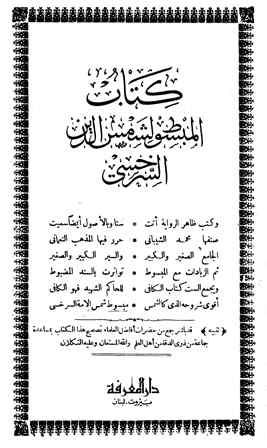 كتاب
المبسوط لشمس الدين
السرخسي
وكتب ظاهر الرواية أتت * ستا وبالأصول أيضا سميت
صنفها محمد الشيباني * حرر فيها المذهب النعماني
الجامع الصغير والكبير * والسير الكبير والصغير
ثم الزيادات مع المبسوط * تواترت بالسند المضبوط
ويجمع الست كتاب الكافي * للحاكم الشهيد فهو الكافي
أقوى شروحه الذي كالشمس * مبسوط شمس الأمة السرخسي
﴿تنبيه﴾ قد باشر جمع من حضرات أفاضل العلماء تصحيح هذا الكتاب بمساعدة
جماعة من ذوي الدقة من أهل العلم والله المستعان وعليه التكلان
دار المعرفة
بيروت - لبنان